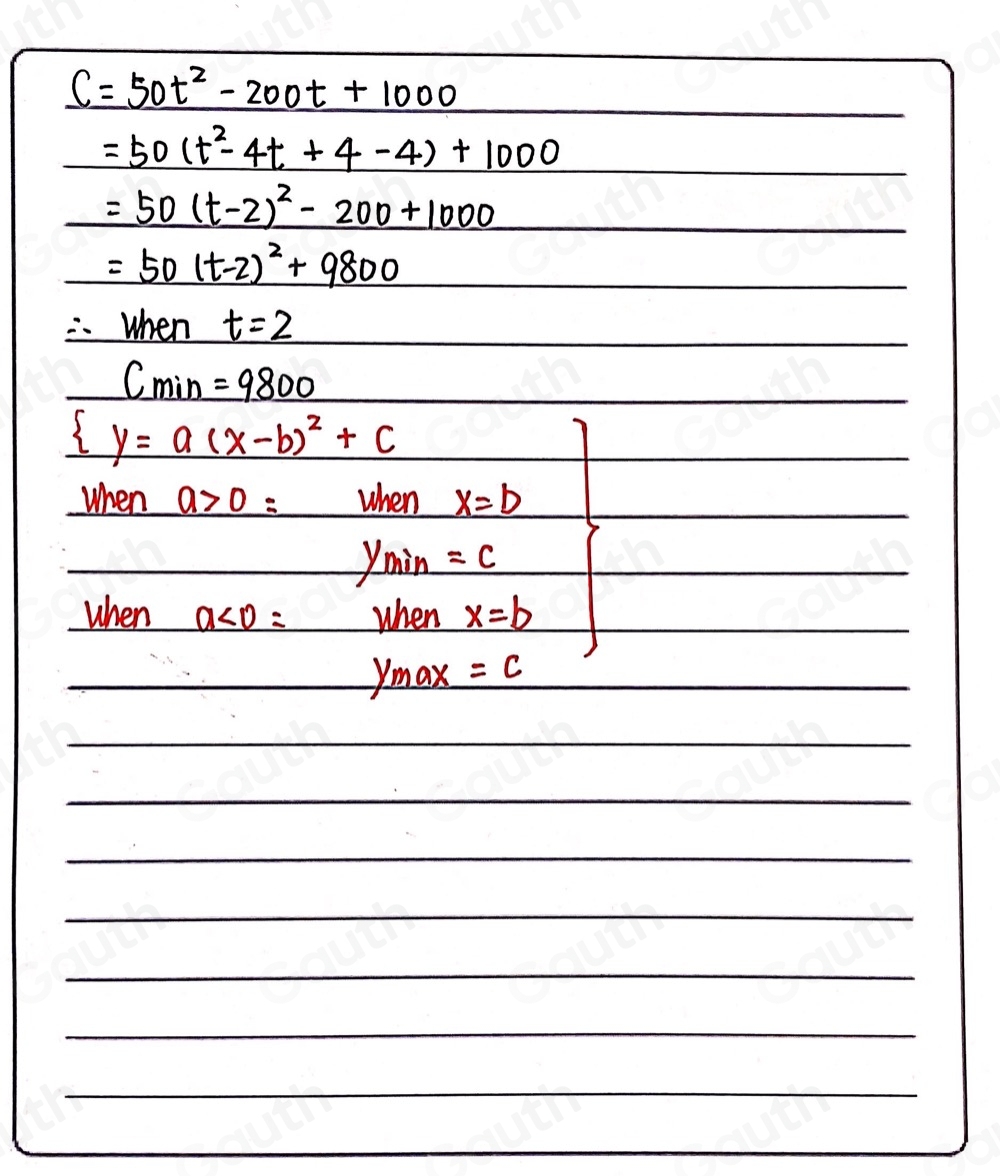 C = 50t² - 200t + 1000
= 50 (t² - 4t + 4 - 4) + 1000
= 50 (t-2)² - 200 + 1000
= 50 (t-2)² + 9800
∴ when t=2
Cmin = 9800
{ y = a (x-b)² + C
when a>0 : when x=b
ymin = c
when a<0 : when x=b
ymax = c }
Gauth